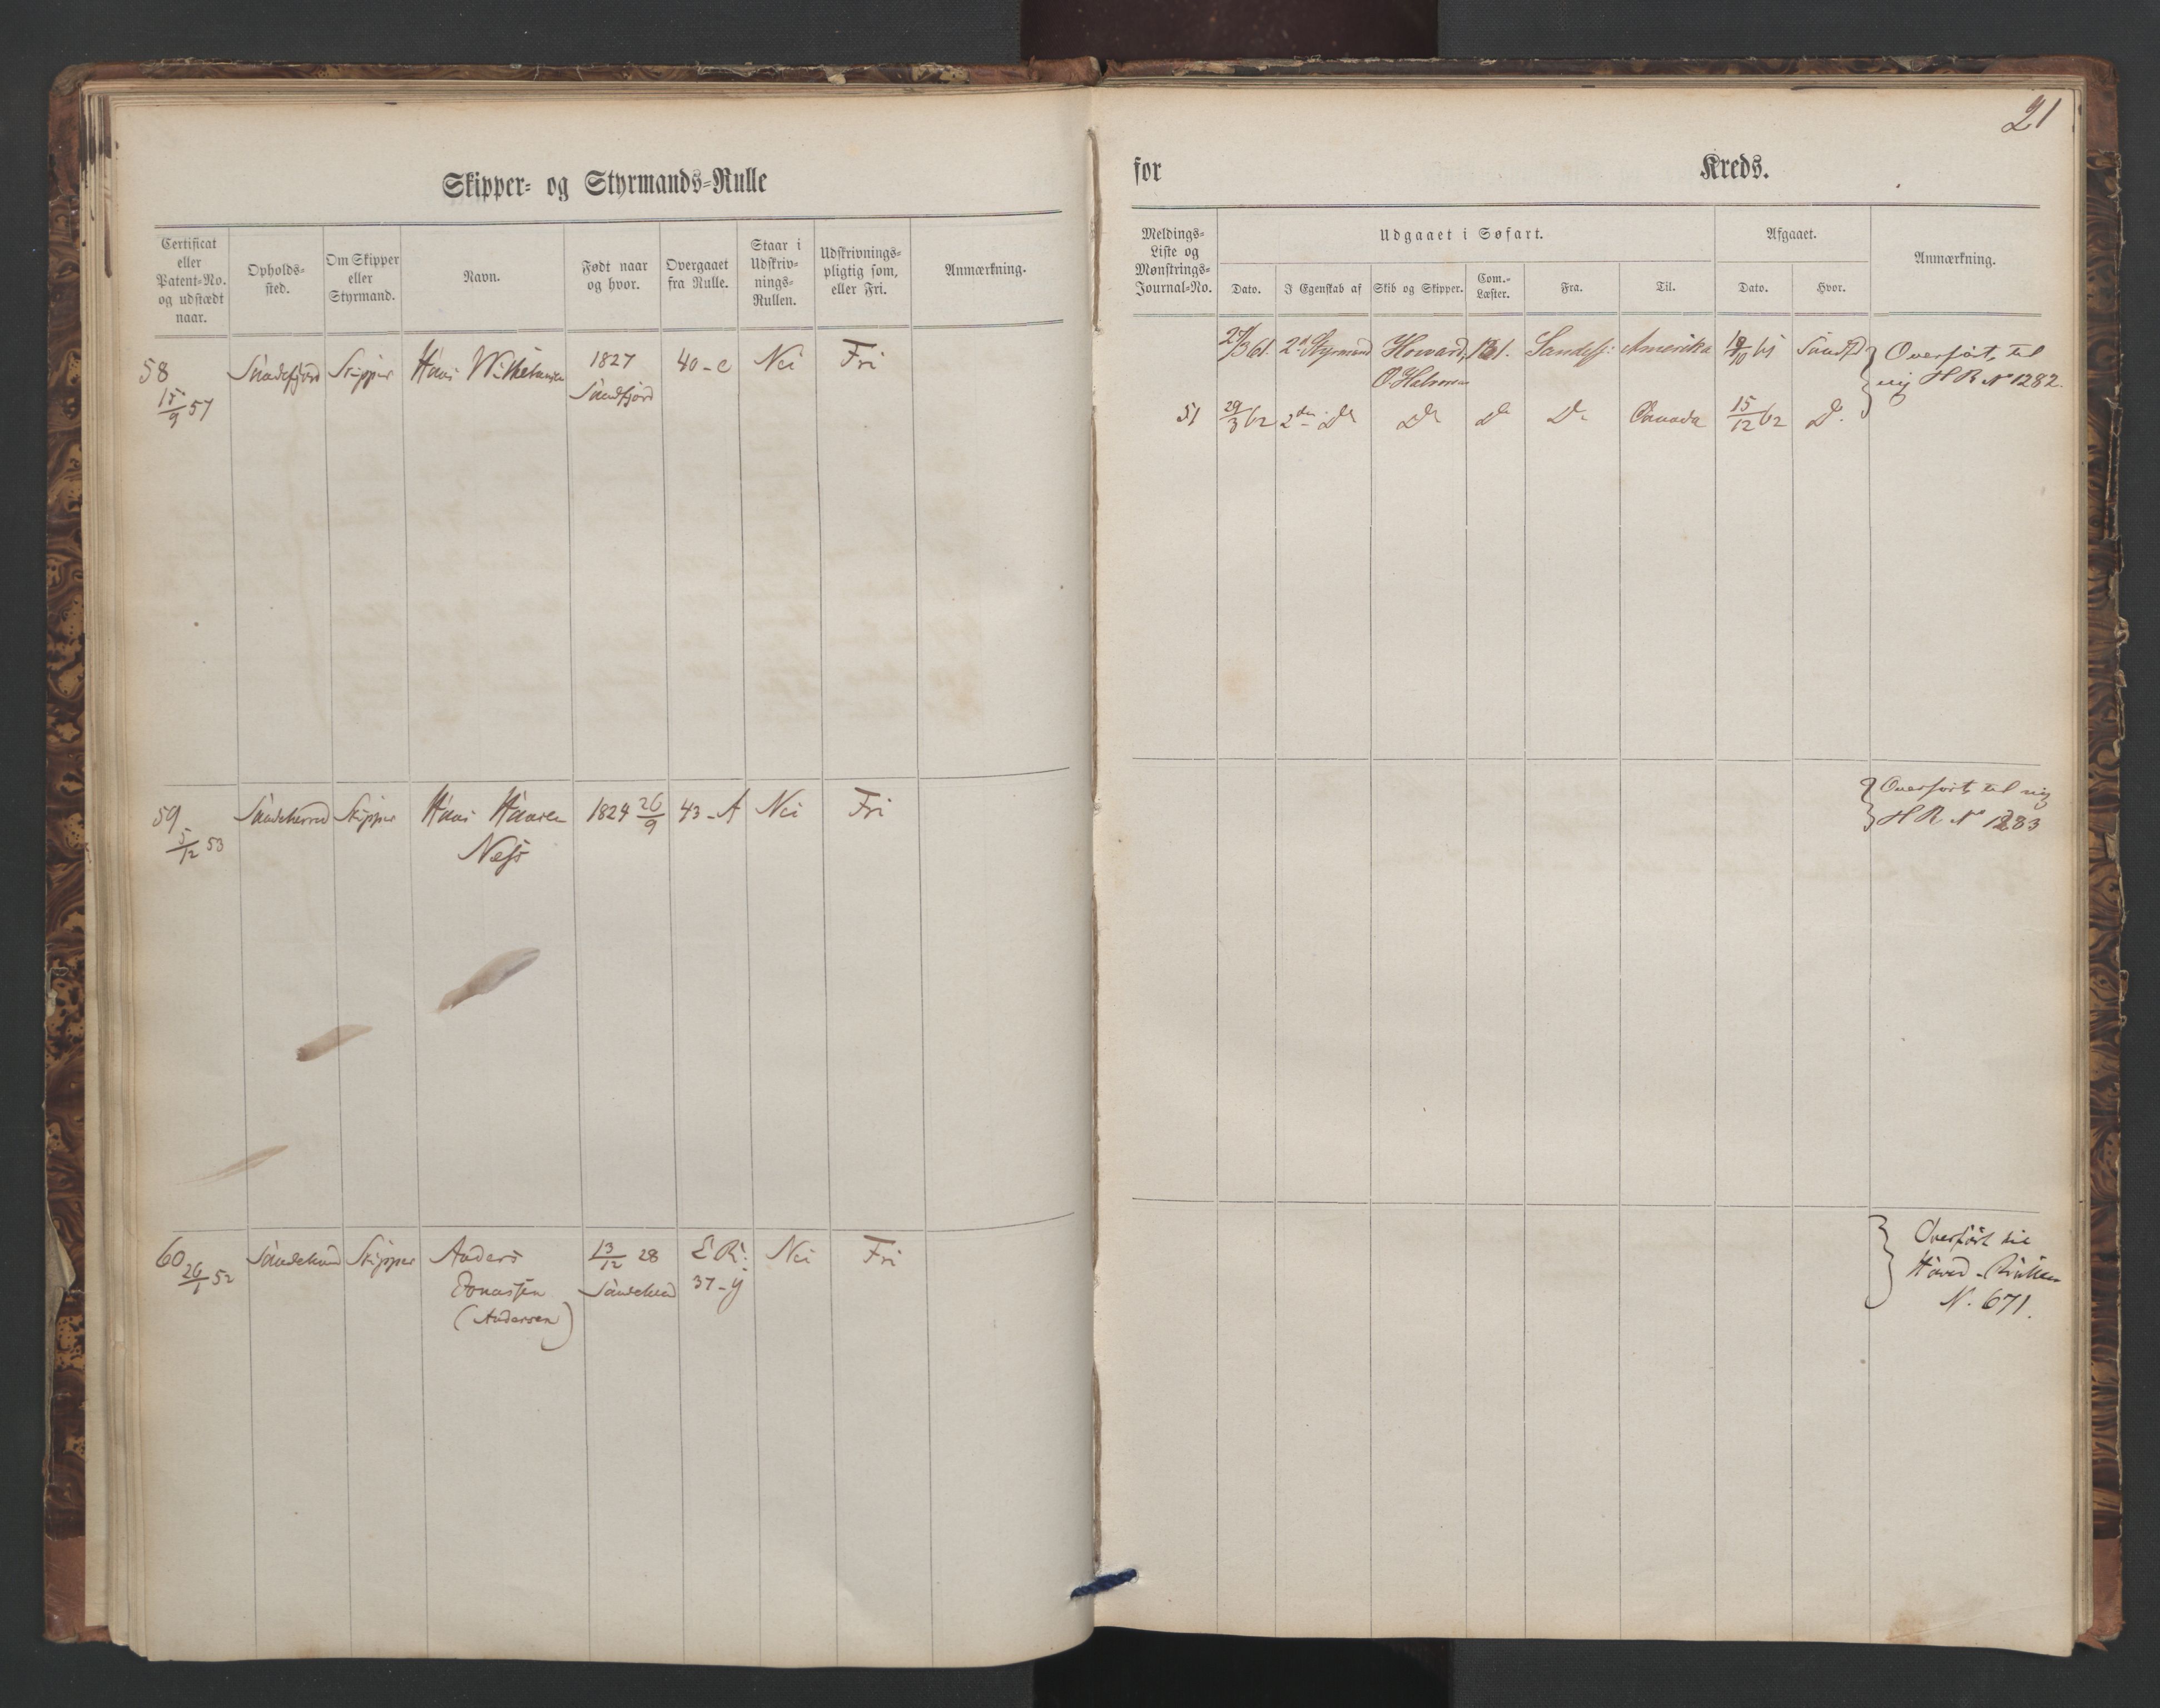 21
Skipper- og Styrmands-Rulle
for Kreds.
Certificat eller Patent-No. og udstædt naar.
Opholds-sted.
Om Skipper eller Styrmand.
Navn.
Født naar og hvor.
Overgaaet fra Rulle.
Staar i Udskriv-nings-Rullen.
Udskrivnings-pligtig som, eller Fri.
Anmærkning.
Meldings-Liste og Mønstrings-Journal-No.
Udgaaet i Søfart.
Dato.
I Egenskab af
Skib og Skipper.
Com.-Læster.
Fra.
Til.
Afgaaet.
Dato.
Hvor.
Anmærkning.
58 Sandefjord Skipper Hans Wilhelmsen 1827 40-C Nei Fri
15/9 57 Sandfjord
2d Styrmand Howard, Sandefj: Amerika Overført til
O Halvorsen nig H R No 1282.
51 29/3 62 2den Do Do Do Do Canada 15/12 62 Do.
59 Sandeherred Skipper Hans Hansen 1824 26/9 43-A Nei Fri
5/12 53 Næss
Overført til nig
H R No 1283
60 Sandeherred Skipper Anders 13/12 28 E.R. Nei Fri
26/1 52 Jonassen Sandeherred 37-y
(Andersen)
Overført til
Hoved-Rullen
N. 671.